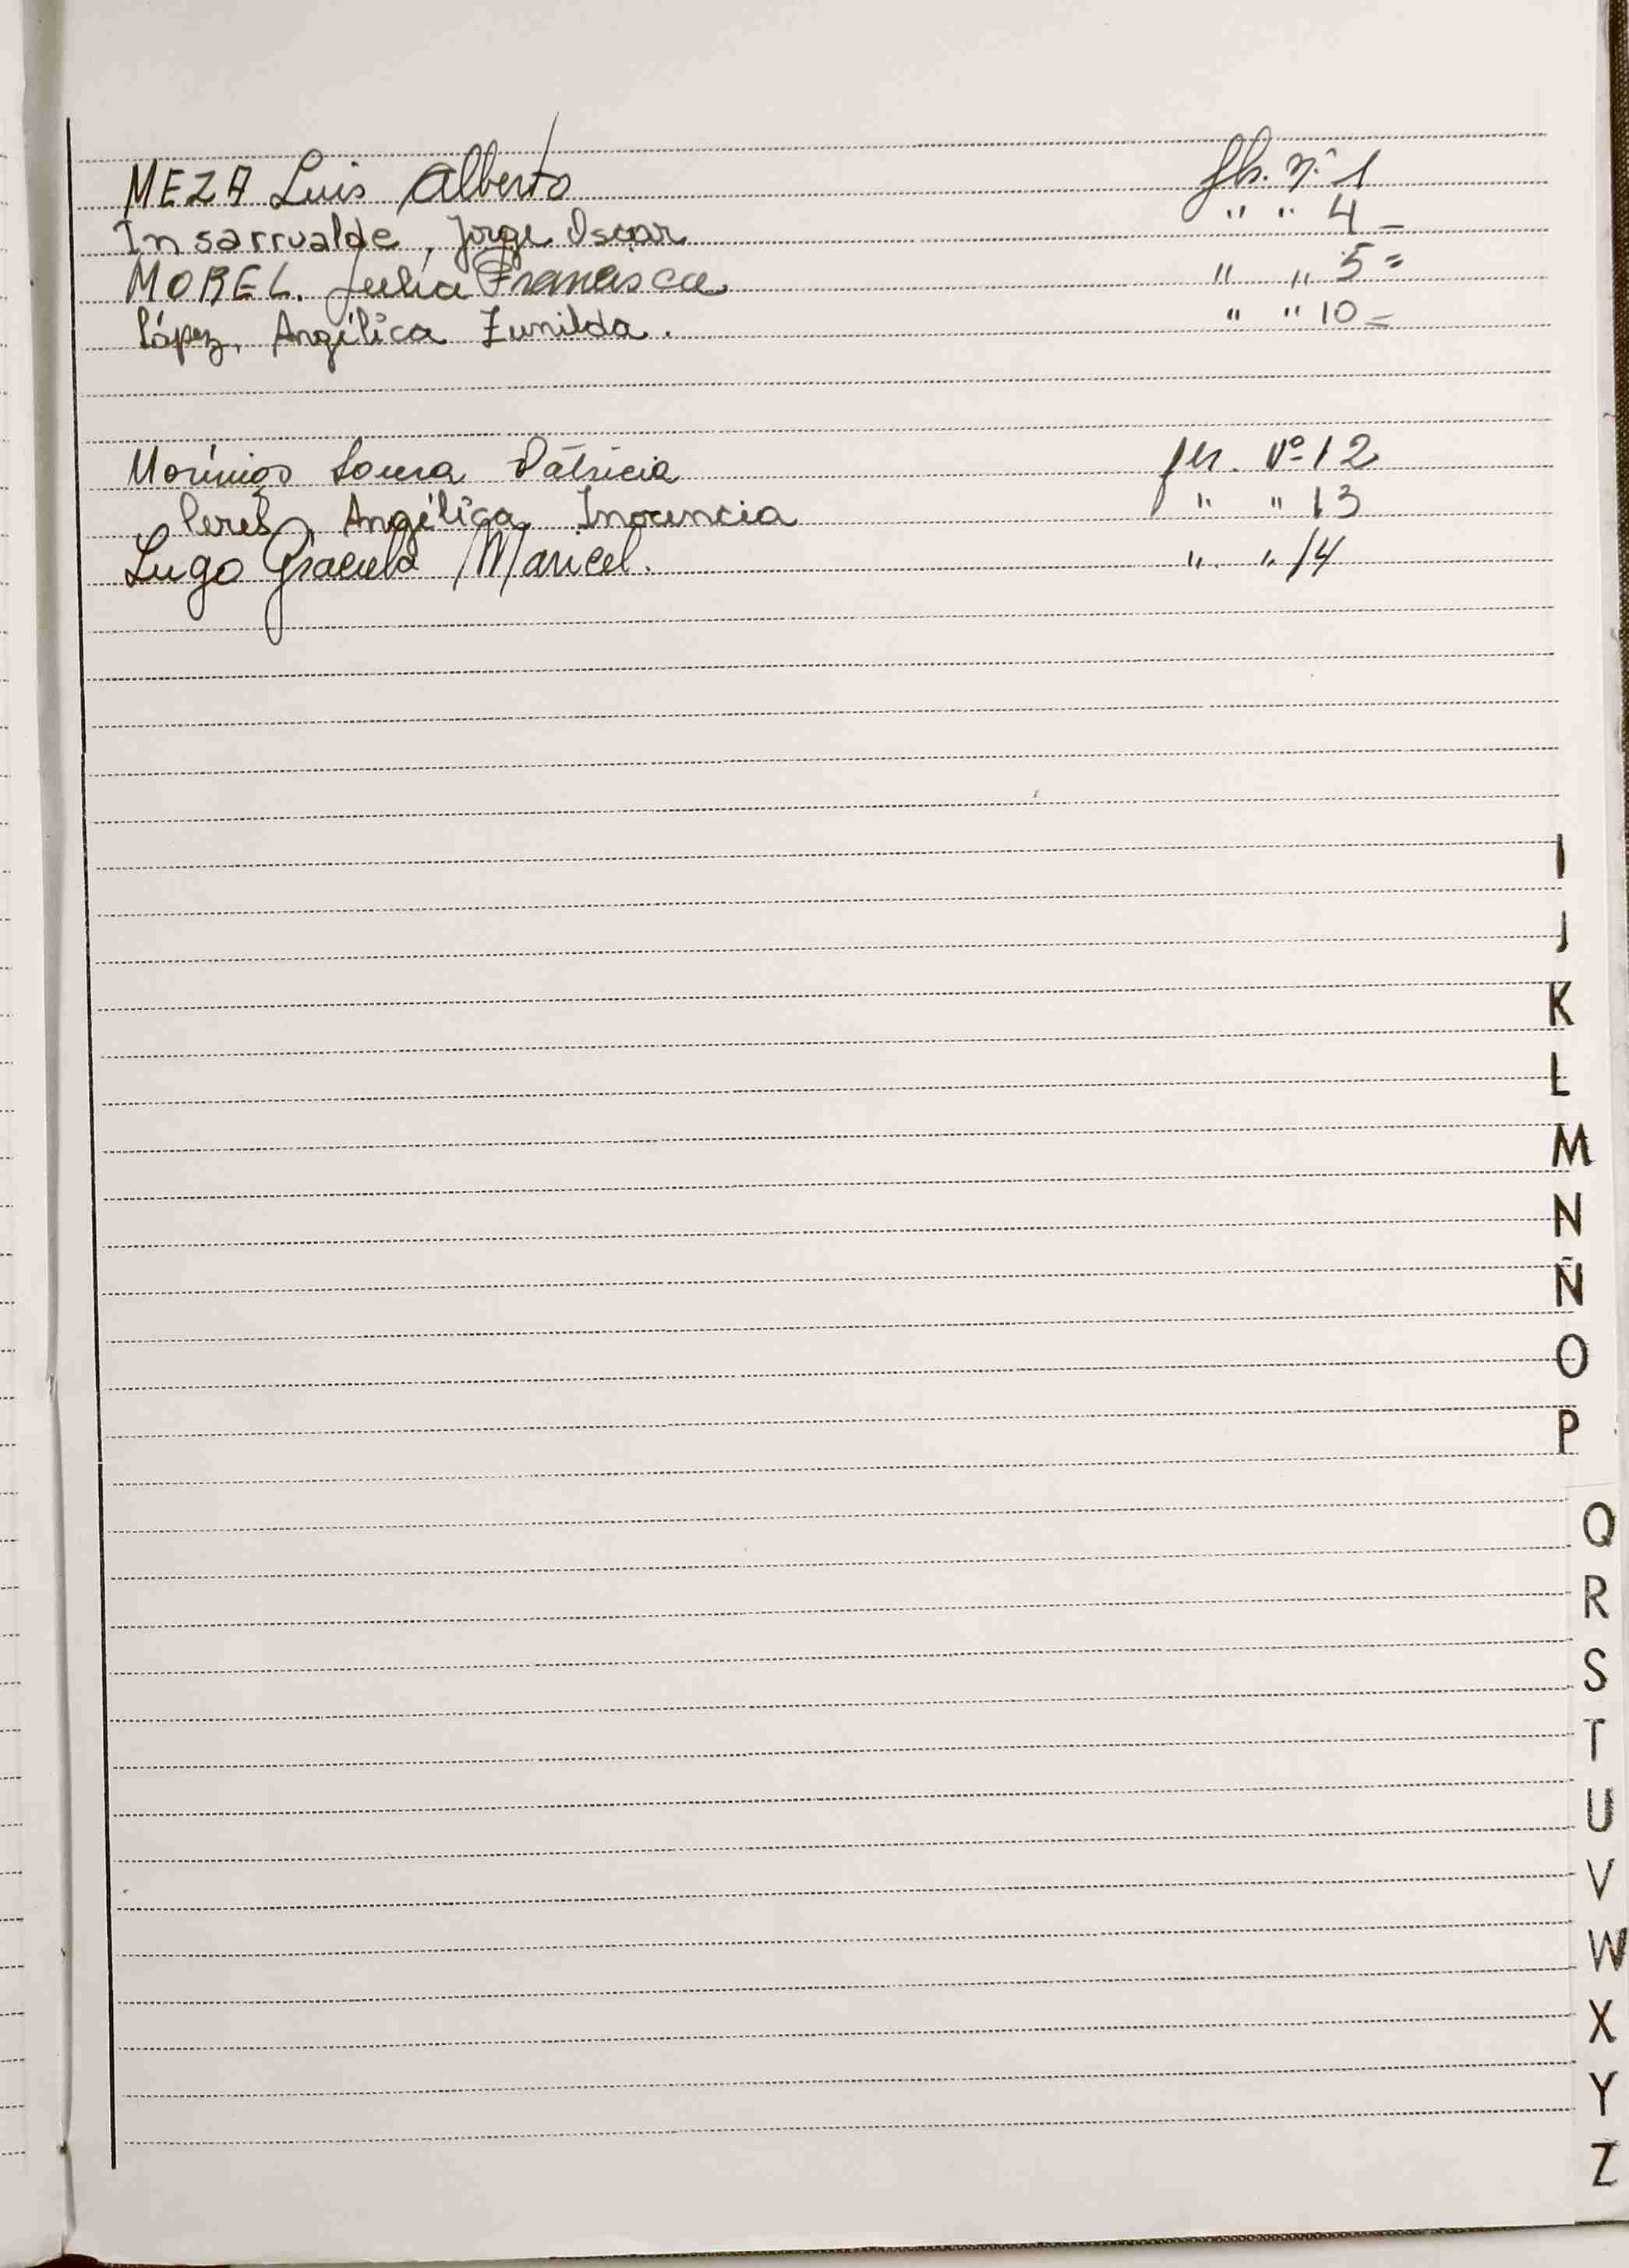 MEZA Luis Alberto fls. nº 1
Insarrualde, Jorge Oscar " " 4 =
MOREL. Julia Francisca " " 5 =
López, Angélica Zunilda. " " 10 =
Morínigo Patricia fls. Nº 12
Perez, Angélica Inocencia " " 13
Lugo Graciela Maricel. " " 14
I
J
K
L
M
N
Ñ
O
P
Q
R
S
T
U
V
W
X
Y
Z